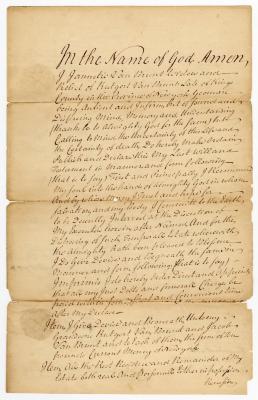 In the Name of God Amen,
I Jannetie Van Brunt Widow and
Relict of Rutgert Van Brunt Late of Kings
County in the Province of New york Yeoman
being Antient and Infirm but of sound and
Disposing Mind, Memory and Understanding
thanks be to Almighty God for the same, but
Calling to Mind the Uncertainty of this Life and
the Certainty of death, Do hereby Make Ordain
Publish and Declare this My Last Will and
Testament in Manner and form following
(that is to say) First and Principally I Recommend
My Soul into the hands of Almighty God in whom
And by whose Mercy I Trust and hope for
Salvation, and my Body I Committ to the Earth,
to be Decently Interred at the Discretion of
My Executors herein after Named And for the
Disposing of Such Temporal Estate wherewith
the Almighty hath been pleased to Bless me
I Do Give Devise and Bequeath the same in
Manner and form following That is to say
Imprimis I do hereby order Direct and Appoint
that all my Just Debts and funerall Charges be
paid
after My Decease
Item, I Give Devise and Bequeath Unto my
Grandsons Rutgert Van Brunt and Jacob
Van Brunt and to Each of them the sum of ten
pounds Current Money of New york
Item, All the Rest Residue and Remainder of My
Estate both reall And Personall Either in possession
Reversion